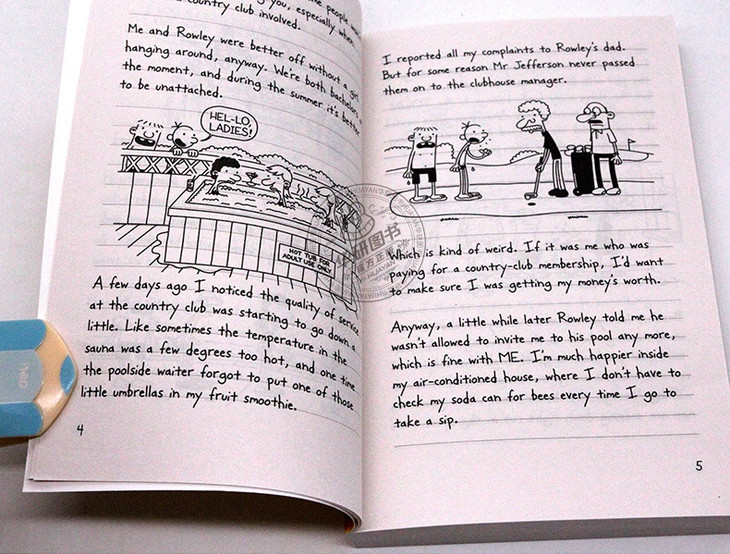 people
you, especially when
country club involved.
Me and Rowley were better off without a
hanging around, anyway. We're both bachelors
the moment, and during the summer it's better
to be unattached.
HEL-LO,
LADIES!
HOT TUB FOR
ADULT USE ONLY.
A few days ago I noticed the quality of service
at the country club was starting to go down a
little. Like sometimes the temperature in the
sauna was a few degrees too hot, and one time
the poolside waiter forgot to put one of those
little umbrellas in my fruit smoothie.
4
I reported all my complaints to Rowley's dad.
But for some reason Mr Jefferson never passed
them on to the clubhouse manager.
Which is kind of weird. If it was me who was
paying for a country-club membership, I'd want
to make sure I was getting my money's worth.
Anyway, a little while later Rowley told me he
wasn't allowed to invite me to his pool any more,
which is fine with ME. I'm much happier inside
my air-conditioned house, where I don't have to
check my soda can for bees every time I go to
take a sip.
5
研图书
HUAYAN